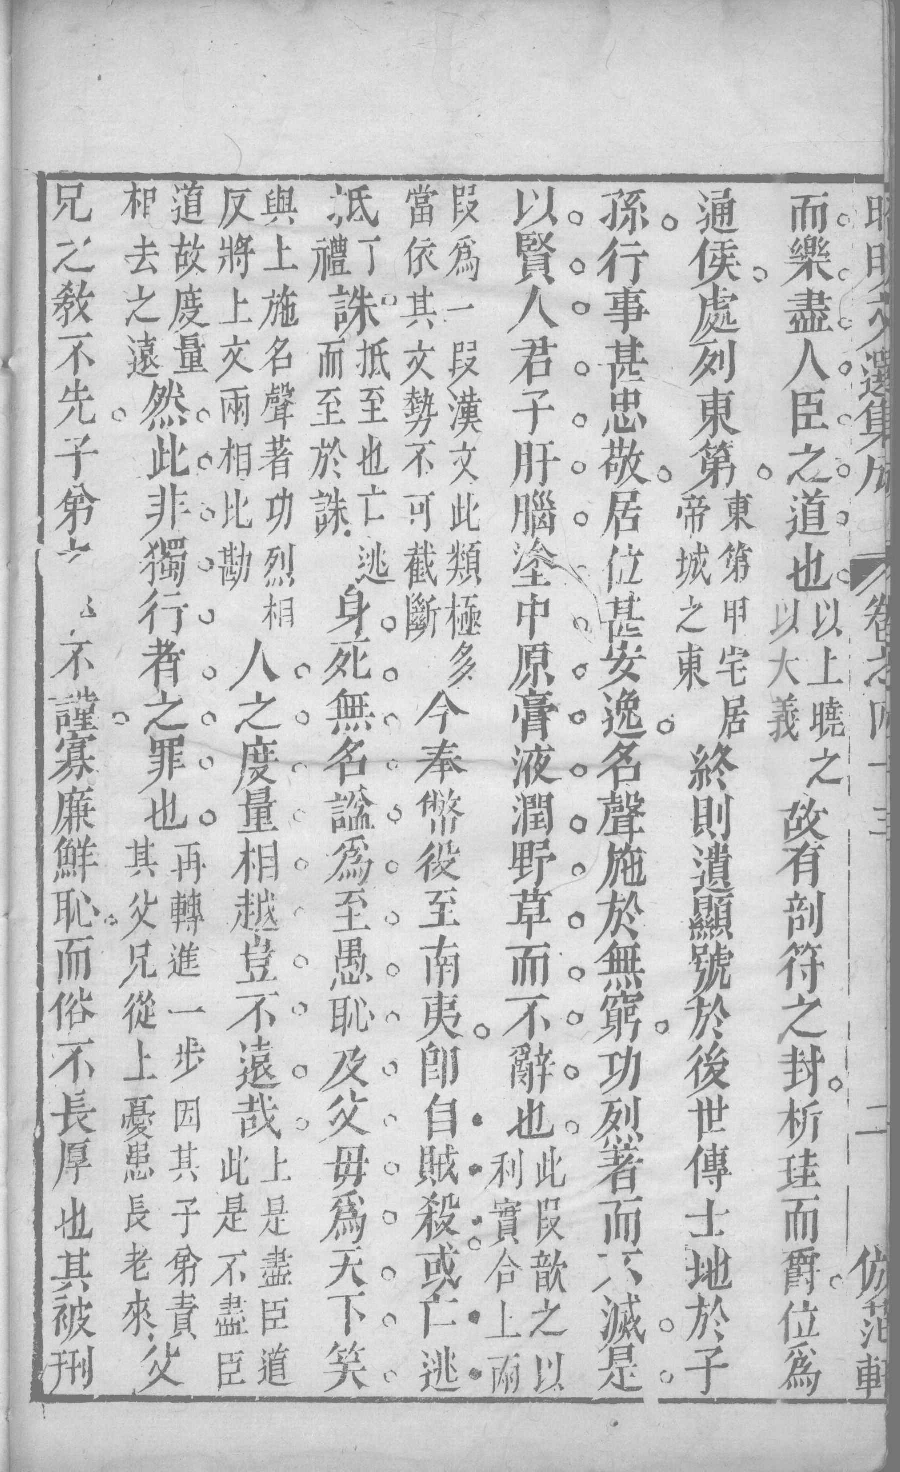 昭明文選集成 卷之四十三 二 倣范軒
而樂盡人臣之道也以上曉之以大義故有剖符之封析珪而爵位為
通侯處列東第東第甲宅居帝城之東終則遺顯號於後世傳土地於子
孫行事甚忠敬居位甚安逸名聲施於無窮功烈著而不滅是
以賢人君子肝腦塗中原膏液潤野草而不辭也此叚歆之以利實合上兩
叚為一叚漢文此類極多當依其文勢不可截斷今奉幣役至南夷卽自賊殺或亡逃
抵丁禮誅抵至也亡逃而至於誅身死無名謚為至愚恥及父母為天下笑
與上施名聲著功烈相反將上文兩相比勘人之度量相越豈不遠哉上是盡臣道此是不盡臣
道故度量相去之遠然此非獨行者之罪也再轉進一步因其子弟責其父兄從上憂患長老來父
兄之教不先子弟不謹寡廉鮮恥而俗不長厚也其被刑